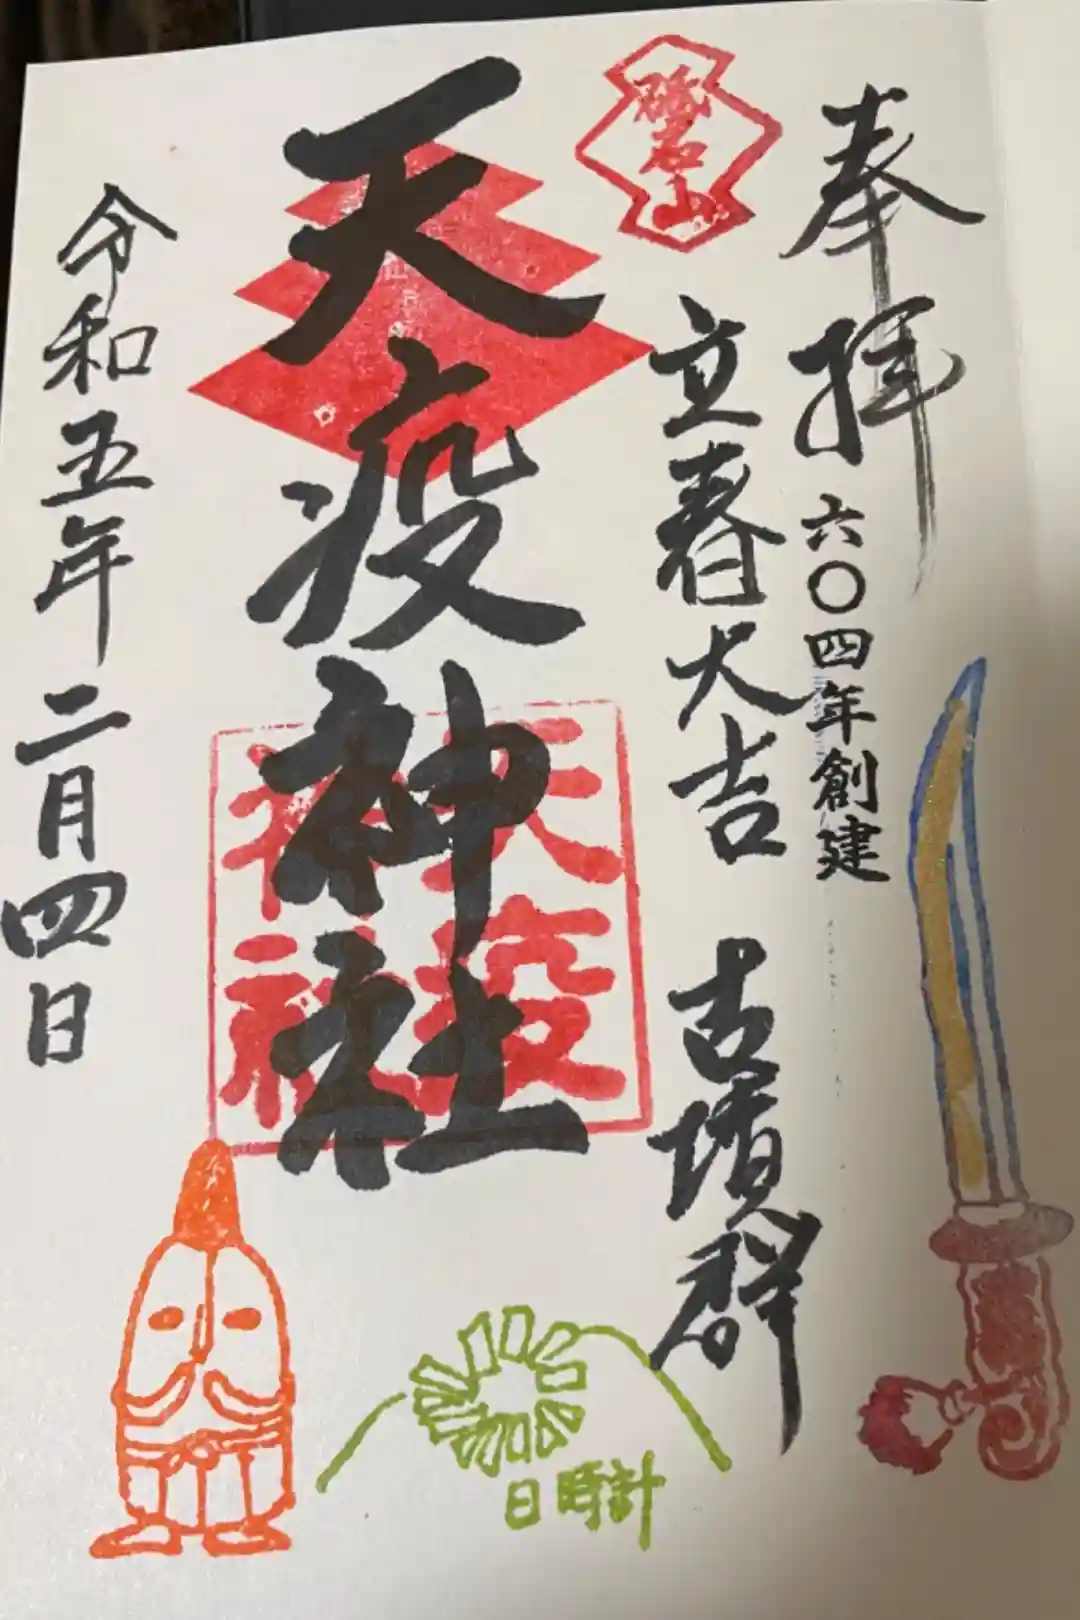 奉拝
六〇四年創建
砥石山
立春大吉 古墳群
天疫神社
天疫
神社
令和五年二月四日
日時計